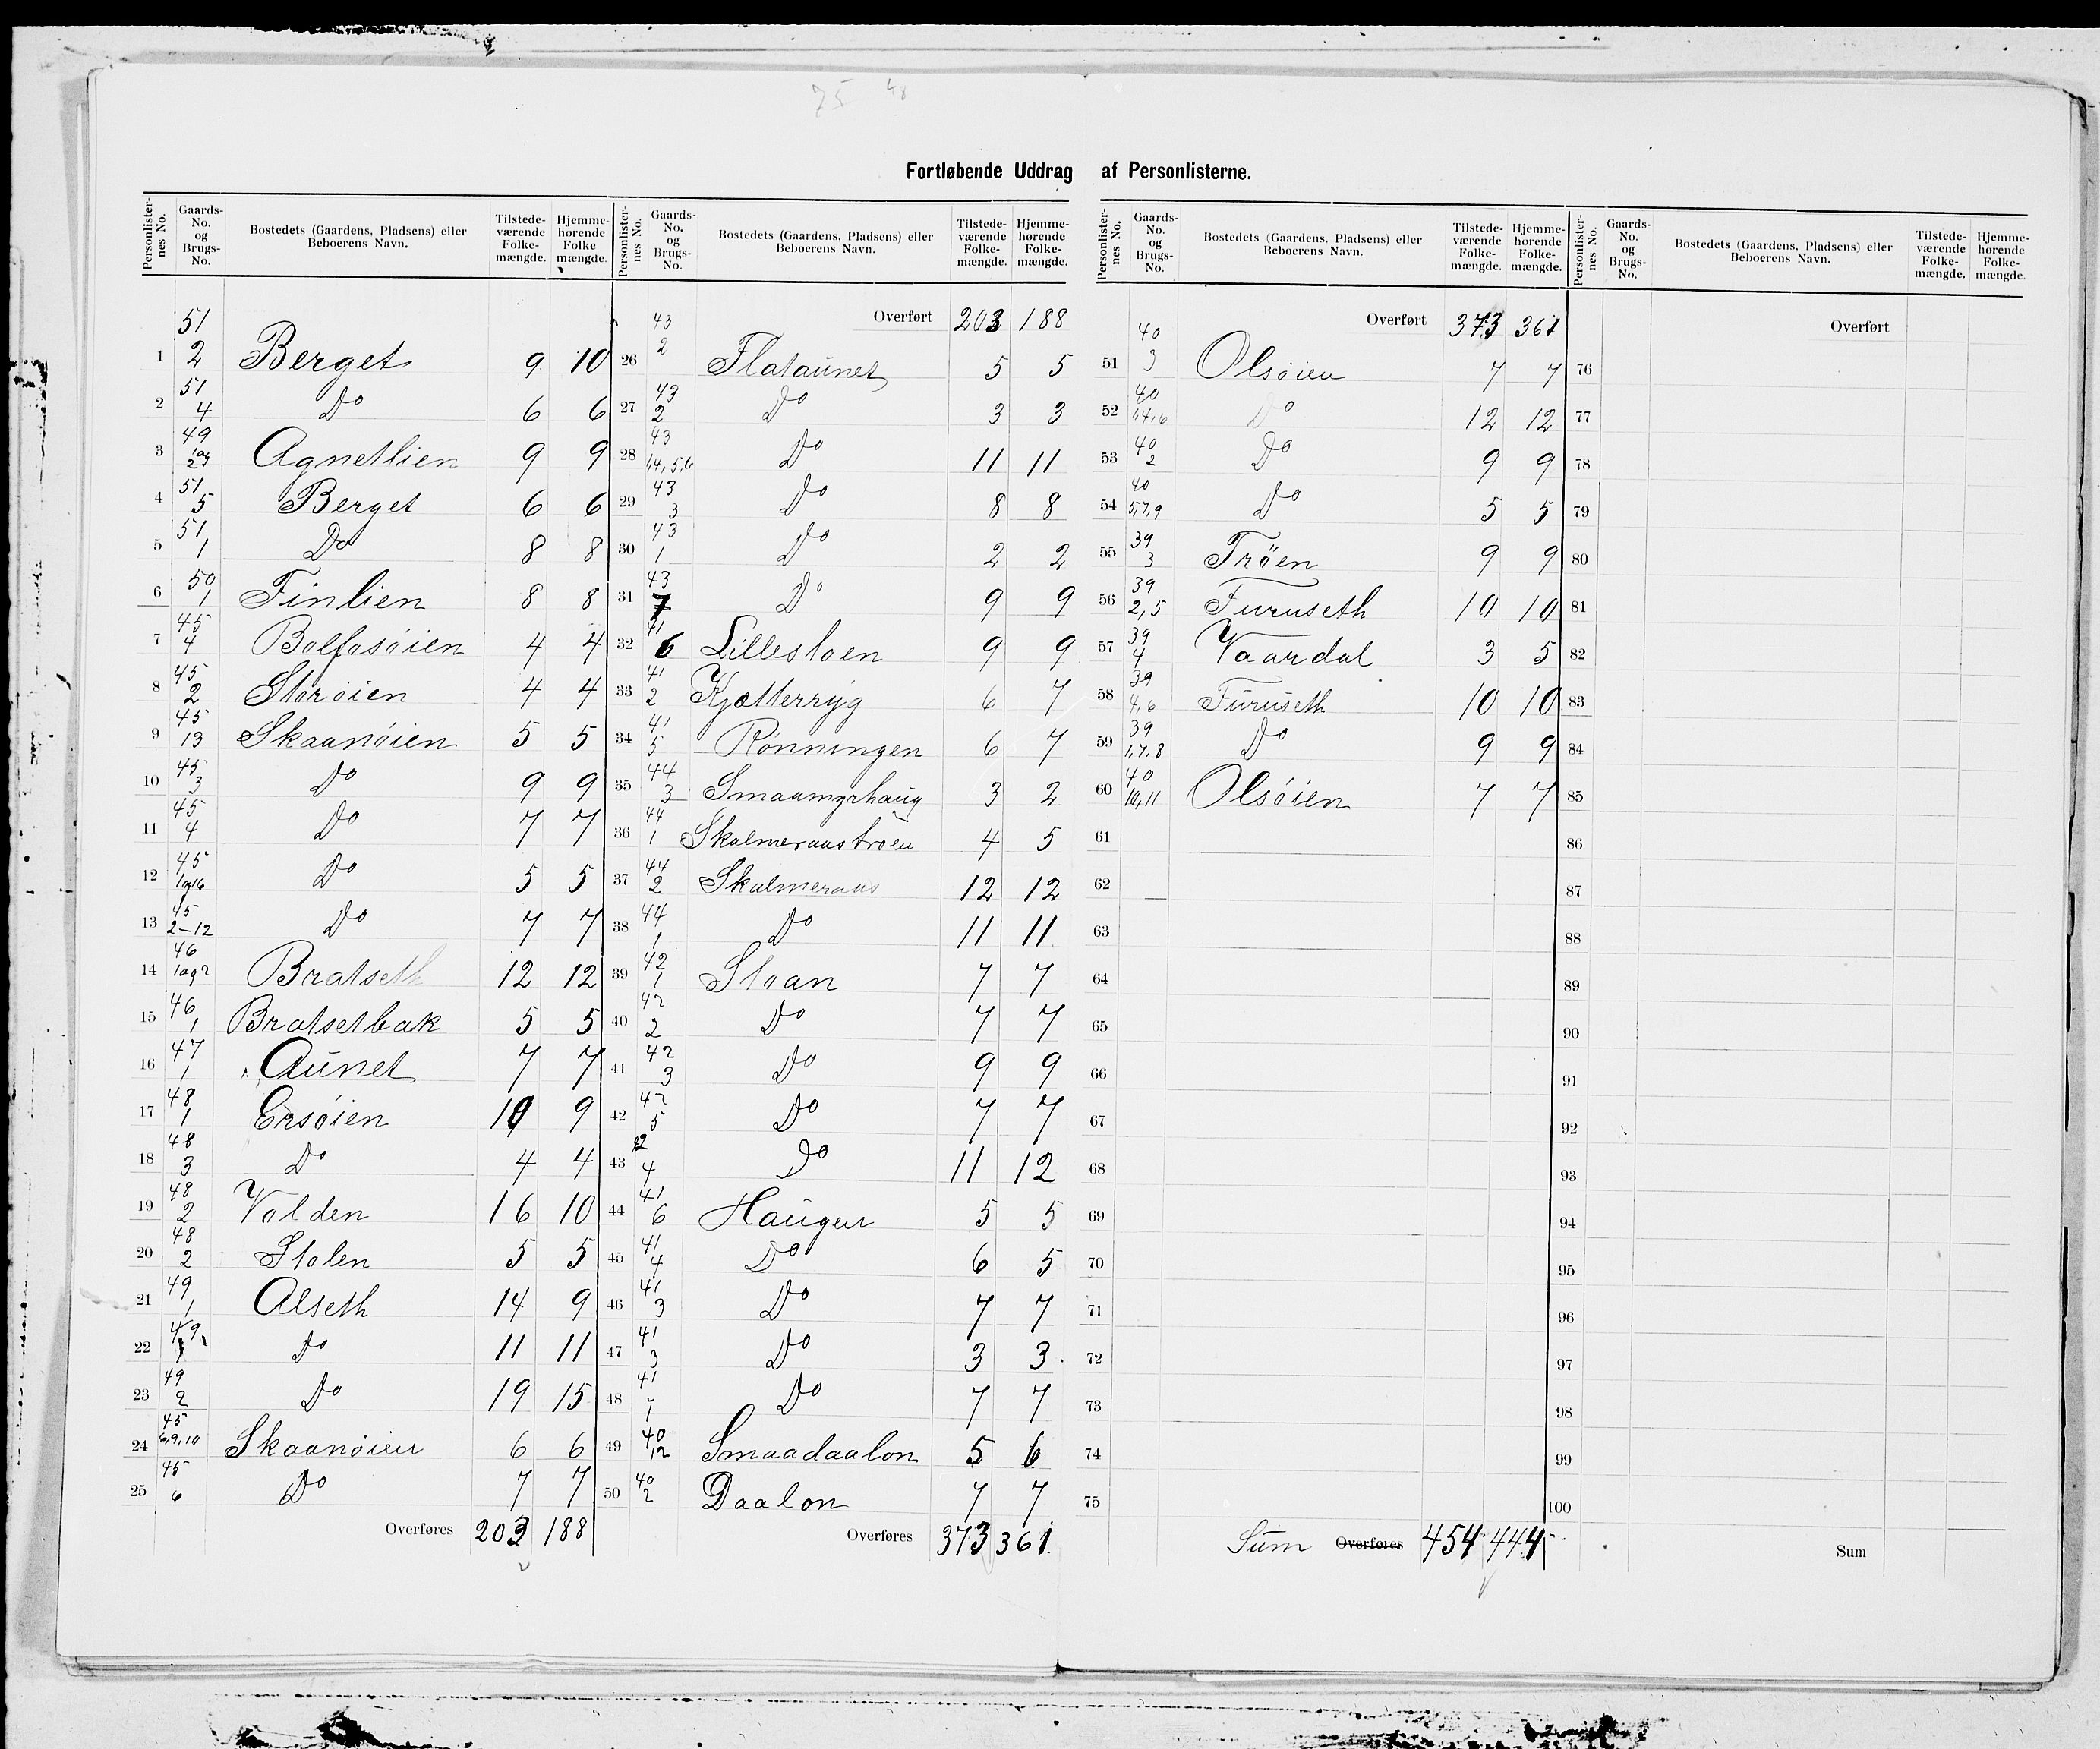 75 48
Fortløbende Uddrag af Personlisterne.
Personlisternes No. Gaards-No. og Brugs-No. Bostedets (Gaardens, Pladsens) eller Beboerens Navn. Tilstedeværende Folkemængde. Hjemmehørende Folkemængde.
1 51 2 Berget 9 10
2 51 4 Do 6 6
3 49 2 og 3 Agnetlien 9 9
4 51 5 Berget 6 6
5 51 1 Do 8 8
6 50 1 Finlien 8 8
7 45 4 Bolfosøien 4 4
8 45 2 Storøien 4 4
9 45 13 Skaanøien 5 5
10 45 3 Do 9 9
11 45 4 Do 7 7
12 45 1og16 Do 5 5
13 45 2-12 Do 7 7
14 46 1og2 Bratseth 12 12
15 46 1 Bratsetbak 5 5
16 47 1 Aunet 7 7
17 48 1 Ersøien 10 9
18 48 3 Do 4 4
19 48 2 Volden 16 10
20 48 2 Stolen 5 5
21 49 1 Alseth 14 9
22 49 1 Do 11 11
23 49 2 Do 19 15
24 45 6,9,10 Skaanøien 6 6
25 45 6 Do 7 7
Overføres 203 188
Personlisternes No. Gaards-No. og Brugs-No. Bostedets (Gaardens, Pladsens) eller Beboerens Navn. Tilstedeværende Folkemængde. Hjemmehørende Folkemængde.
Overført 203 188
26 43 2 Flataunet 5 5
27 43 2 Do 3 3
28 43 1,4,5,6 Do 11 11
29 43 3 Do 8 8
30 43 1 Do 2 2
31 43 7 Do 9 9
32 41 6 Lillestoen 9 9
33 41 2 Kjøtterryg 6 7
34 41 5 Rønningen 6 7
35 44 3 Smaamyrhaug 3 2
36 44 1 Skalmeraastrøen 4 5
37 44 2 Skalmeraas 12 12
38 44 1 Do 11 11
39 42 1 Stoan 7 7
40 42 2 Do 7 7
41 42 3 Do 9 9
42 42 5 Do 7 7
43 42 4 Do 11 12
44 41 6 Haugen 5 5
45 41 4 Do 6 5
46 41 3 Do 7 7
47 41 3 Do 3 3
48 41 1 Do 7 7
49 40 12 Smaadaalon 5 6
50 40 2 Daalon 7 7
Overføres 373 361
Personlisternes No. Gaards-No. og Brugs-No. Bostedets (Gaardens, Pladsens) eller Beboerens Navn. Tilstedeværende Folkemængde. Hjemmehørende Folkemængde.
Overført 373 361
51 40 3 Olsøien 7 7
52 40 1,4,6 Do 12 12
53 40 2 Do 9 9
54 40 5,7,9 Do 5 5
55 39 3 Trøen 9 9
56 39 2,5 Furuseth 10 10
57 39 4 Vaardal 3 5
58 39 4,6 Furuseth 10 10
59 39 1,7,8 Do 9 9
60 40 10,11 Olsøien 7 7
61
62
63
64
65
66
67
68
69
70
71
72
73
74
75
Sum Overføres 454 444
Personlisternes No. Gaards-No. og Brugs-No. Bostedets (Gaardens, Pladsens) eller Beboerens Navn. Tilstedeværende Folkemængde. Hjemmehørende Folkemængde.
Overført
76
77
78
79
80
81
82
83
84
85
86
87
88
89
90
91
92
93
94
95
96
97
98
99
100
Sum